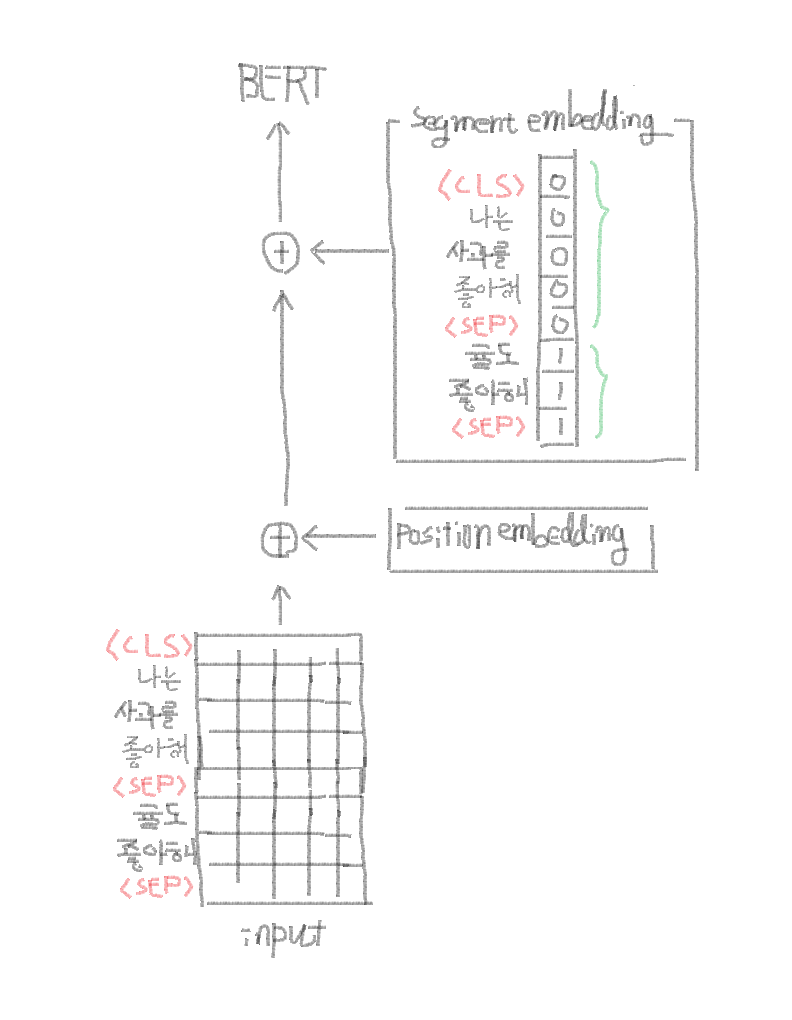 BERT
Segment embedding
<CLS> 0
나는 0
사과를 0
좋아해 0
<SEP> 0
귤도 1
좋아해 1
<SEP> 1
+
+
Position embedding
<CLS>
나는
사과를
좋아해
<SEP>
귤도
좋아해
<SEP>
input